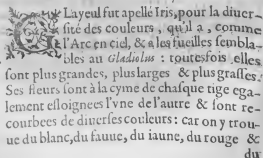 Layeul fut apellé Iris, pour la diuer-
sité des couleurs, qu'il a, comme
l'Arc en ciel, & a les fueilles sembla-
bles au Gladiolus : toutesfois elles
sont plus grandes, plus larges & plus grasses.
Ses fleurs sont à la cyme de chasque tige ega-
lement esloignees l'vne de l'autre & sont re-
courbees de diuerses couleurs : car on y trou-
ue du blanc, du fauue, du iaune, du rouge &
du